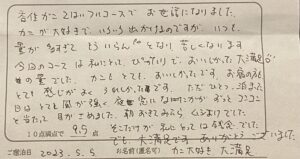 昔住かこではフルコースで お世話になりました。
カニが大好きで、いろいろ出かけるのですが、いつも
量が多すぎて もういらん となり 苦しくなります
今回のコースは私にとって ぴったりで、おいしかった 大満足
の量でした。カニもとても、おいしかったです。お宿の方も
とても 感じがよく うれしかったです。ただひとつ、泊まった
日はとても風が強く 夜中 になにかが ずっと コンコン
と当たって 目がさめました。
10点満点で 9.5 点 そこだけが 私にとっては 残念でした。
でも、大満足です。ありがとうございました。
ご宿泊日 2023.5.5 お名前(匿名可) カニ大好き 大満足